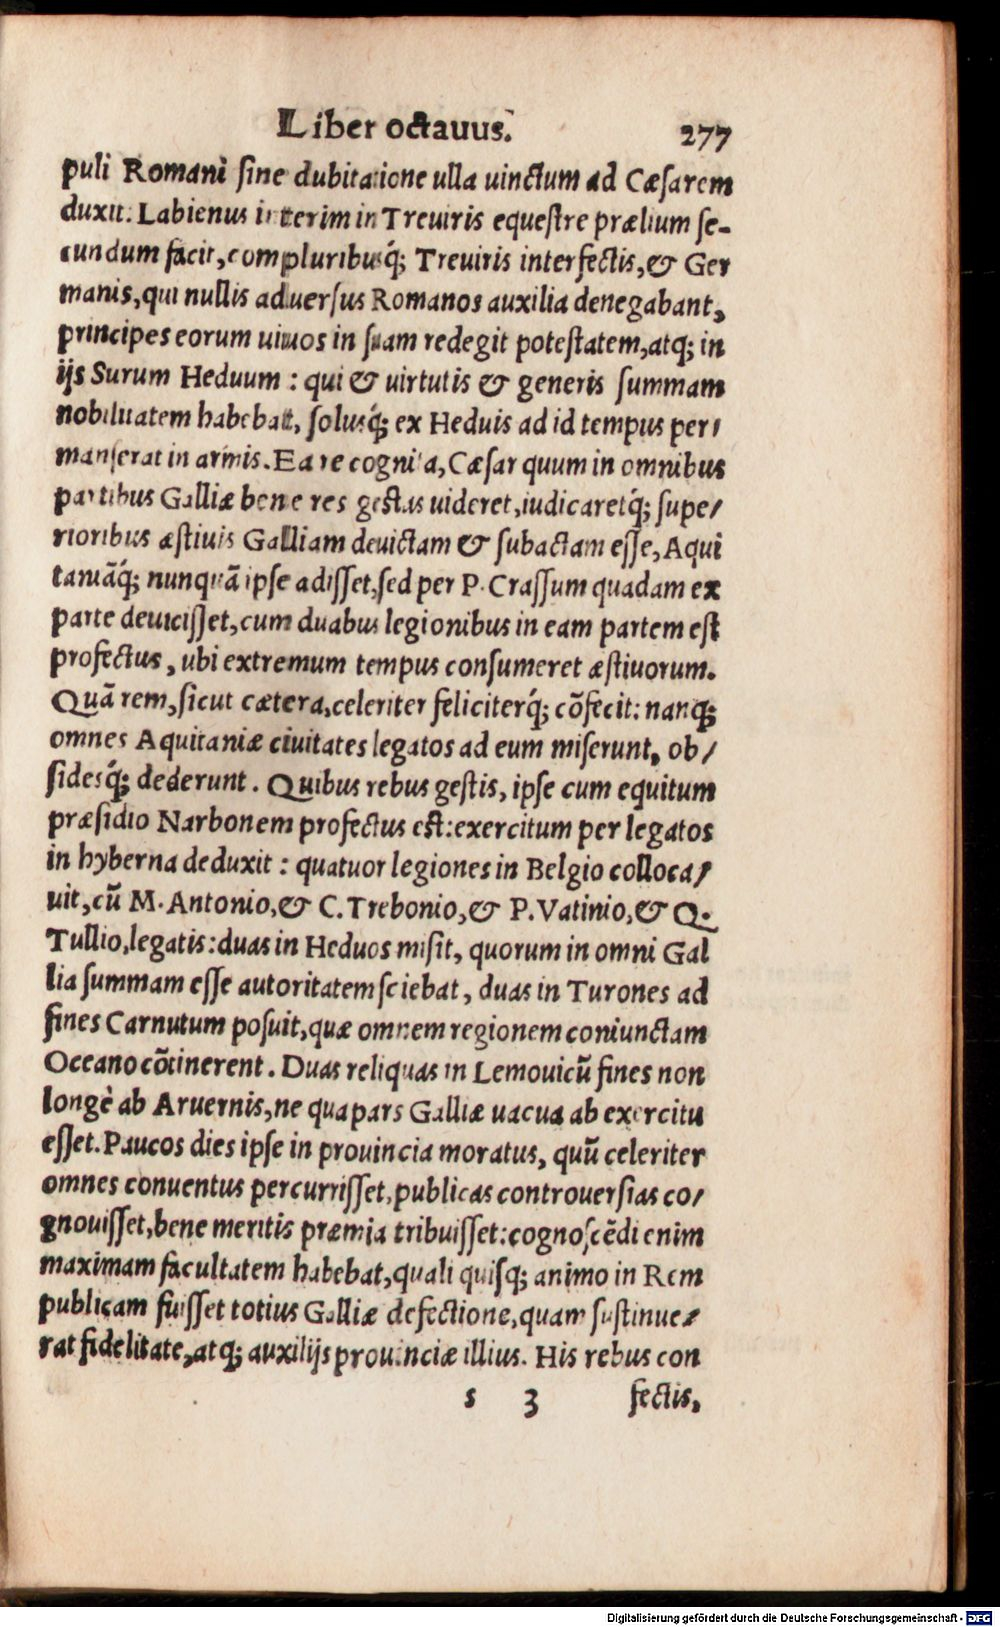 Liber octauus. 277
puli Romani sine dubitatione ulla uinctum ad Cæsarem
duxit. Labienus interim in Treuiris equestre prælium se-
cundum facit, compluribusq́; Treuiris interfectis, & Ger
manis, qui nullis aduersus Romanos auxilia denegabant,
principes eorum uiuos in suam redegit potestatem, atq; in
ijs Surum Heduum : qui & uirtutis & generis summam
nobilitatem habebat, solusq́; ex Heduis ad id tempus per/
manserat in armis. Ea re cognita, Cæsar quum in omnibus
partibus Galliæ bene res gestas uideret, iudicaretq́; supe/
rioribus æstiuis Galliam deuictam & subactam esse, Aqui
taniāq́; nunquā ipse adisset, sed per P. Crassum quadam ex
parte deuicisset, cum duabus legionibus in eam partem est
profectus, ubi extremum tempus consumeret æstiuorum.
Quā rem, sicut cætera, celeriter feliciterq́; cōfecit: nanq;
omnes Aquitaniæ ciuitates legatos ad eum miserunt, ob/
sidesq́; dederunt. Quibus rebus gestis, ipse cum equitum
præsidio Narbonem profectus est: exercitum per legatos
in hyberna deduxit : quatuor legiones in Belgio colloca/
uit, cū M. Antonio, & C. Trebonio, & P. Vatinio, & Q.
Tullio, legatis: duas in Heduos misit, quorum in omni Gal
lia summam esse autoritatem sciebat, duas in Turones ad
fines Carnutum posuit, quæ omnem regionem coniunctam
Oceano cōtinerent. Duas reliquas in Lemouicū fines non
longè ab Aruernis, ne qua pars Galliæ uacua ab exercitu
esset. Paucos dies ipse in prouincia moratus, quū celeriter
omnes conuentus percurrisset, publicas controuersias co/
gnouisset, bene meritis præmia tribuisset: cognoscēdi enim
maximam facultatem habebat, quali quisq; animo in Rem
publicam fuisset totius Galliæ defectione, quam sustinue/
rat fidelitate, atq; auxilijs prouinciæ illius. His rebus con
s 3 fectis,
Digitalisierung gefördert durch die Deutsche Forschungsgemeinschaft - DFG